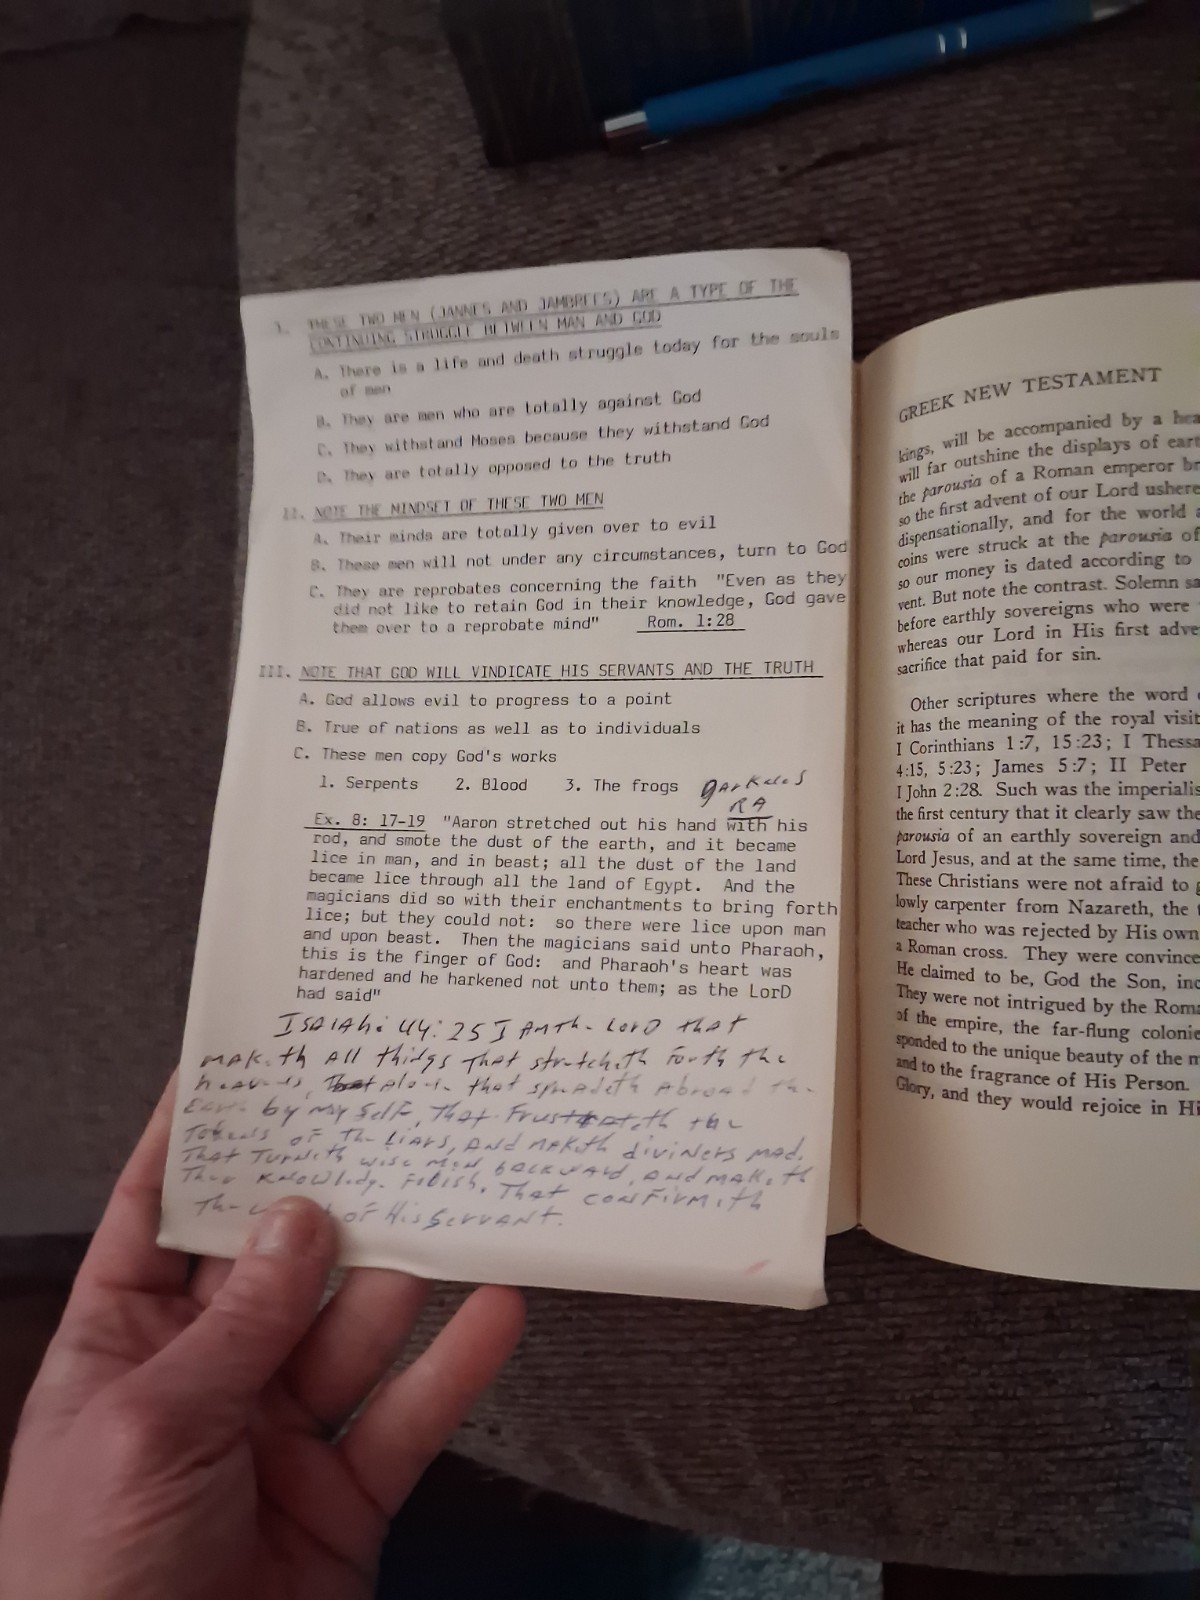 I. THESE TWO MEN (JANNES AND JAMBREES) ARE A TYPE OF THE
CONTINUING STRUGGLE BETWEEN MAN AND GOD
A. There is a life and death struggle today for the souls
of men
B. They are men who are totally against God
C. They withstand Moses because they withstand God
D. They are totally opposed to the truth
II. NOTE THE MINDSET OF THESE TWO MEN
A. Their minds are totally given over to evil
B. These men will not under any circumstances, turn to God
C. They are reprobates concerning the faith "Even as they
did not like to retain God in their knowledge, God gave
them over to a reprobate mind" Rom. 1:28
III. NOTE THAT GOD WILL VINDICATE HIS SERVANTS AND THE TRUTH
A. God allows evil to progress to a point
B. True of nations as well as to individuals
C. These men copy God's works
1. Serpents 2. Blood 3. The frogs
RA
Ex. 8: 17-19 "Aaron stretched out his hand with his
rod, and smote the dust of the earth, and it became
lice in man, and in beast; all the dust of the land
became lice through all the land of Egypt. And the
magicians did so with their enchantments to bring forth
lice; but they could not: so there were lice upon man
and upon beast. Then the magicians said unto Pharaoh,
this is the finger of God: and Pharaoh's heart was
hardened and he harkened not unto them; as the LorD
had said"
ISAIAh: 44: 25 I AM The LorD that
maketh All things That stretcheth Forth the
heavens, Alone that spreadeth Abroad the
Earth by my SelF, That Frustrateth the
Tokens oF The LiArs, And maketh diviners mad.
That Turneth wise men backward, And maketh
Their Knowledge Foolish. That conFirmeth
The oF His ServANT.
GREEK NEW TESTAMENT
kings, will be accompanied by a
will far outshine the displays of
the parousia of a Roman emperor
so the first advent of our Lord
dispensationally, and for the world
coins were struck at the parousia of
so our money is dated according to
vent. But note the contrast. Solemn
before earthly sovereigns who were
whereas our Lord in His first
sacrifice that paid for sin.
Other scriptures where the word
it has the meaning of the royal
I Corinthians 1:7, 15:23; I
4:15, 5:23; James 5:7; II Peter
I John 2:28. Such was the
the first century that it clearly saw the
parousia of an earthly sovereign and
Lord Jesus, and at the same time, the
These Christians were not afraid to
lowly carpenter from Nazareth, the
teacher who was rejected by His own
a Roman cross. They were
He claimed to be, God the Son,
They were not intrigued by the
of the empire, the far-flung
sponded to the unique beauty of the
and to the fragrance of His Person.
Glory, and they would rejoice in